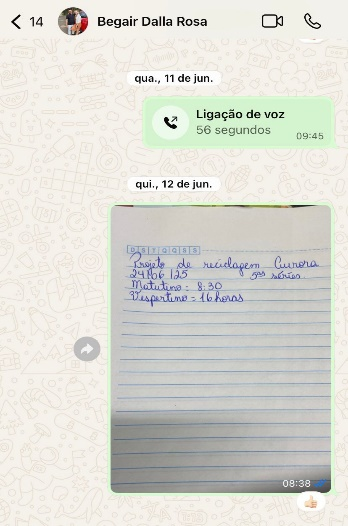 14 Begair Dalla Rosa
qua., 11 de jun.
Ligação de voz
56 segundos
09:45
qui., 12 de jun.
D S T Q Q S S
Projeto de reciclagem Aurora
24/06/25 5ªs séries
Matutino = 8:30
Vespertino = 16 horas
08:38